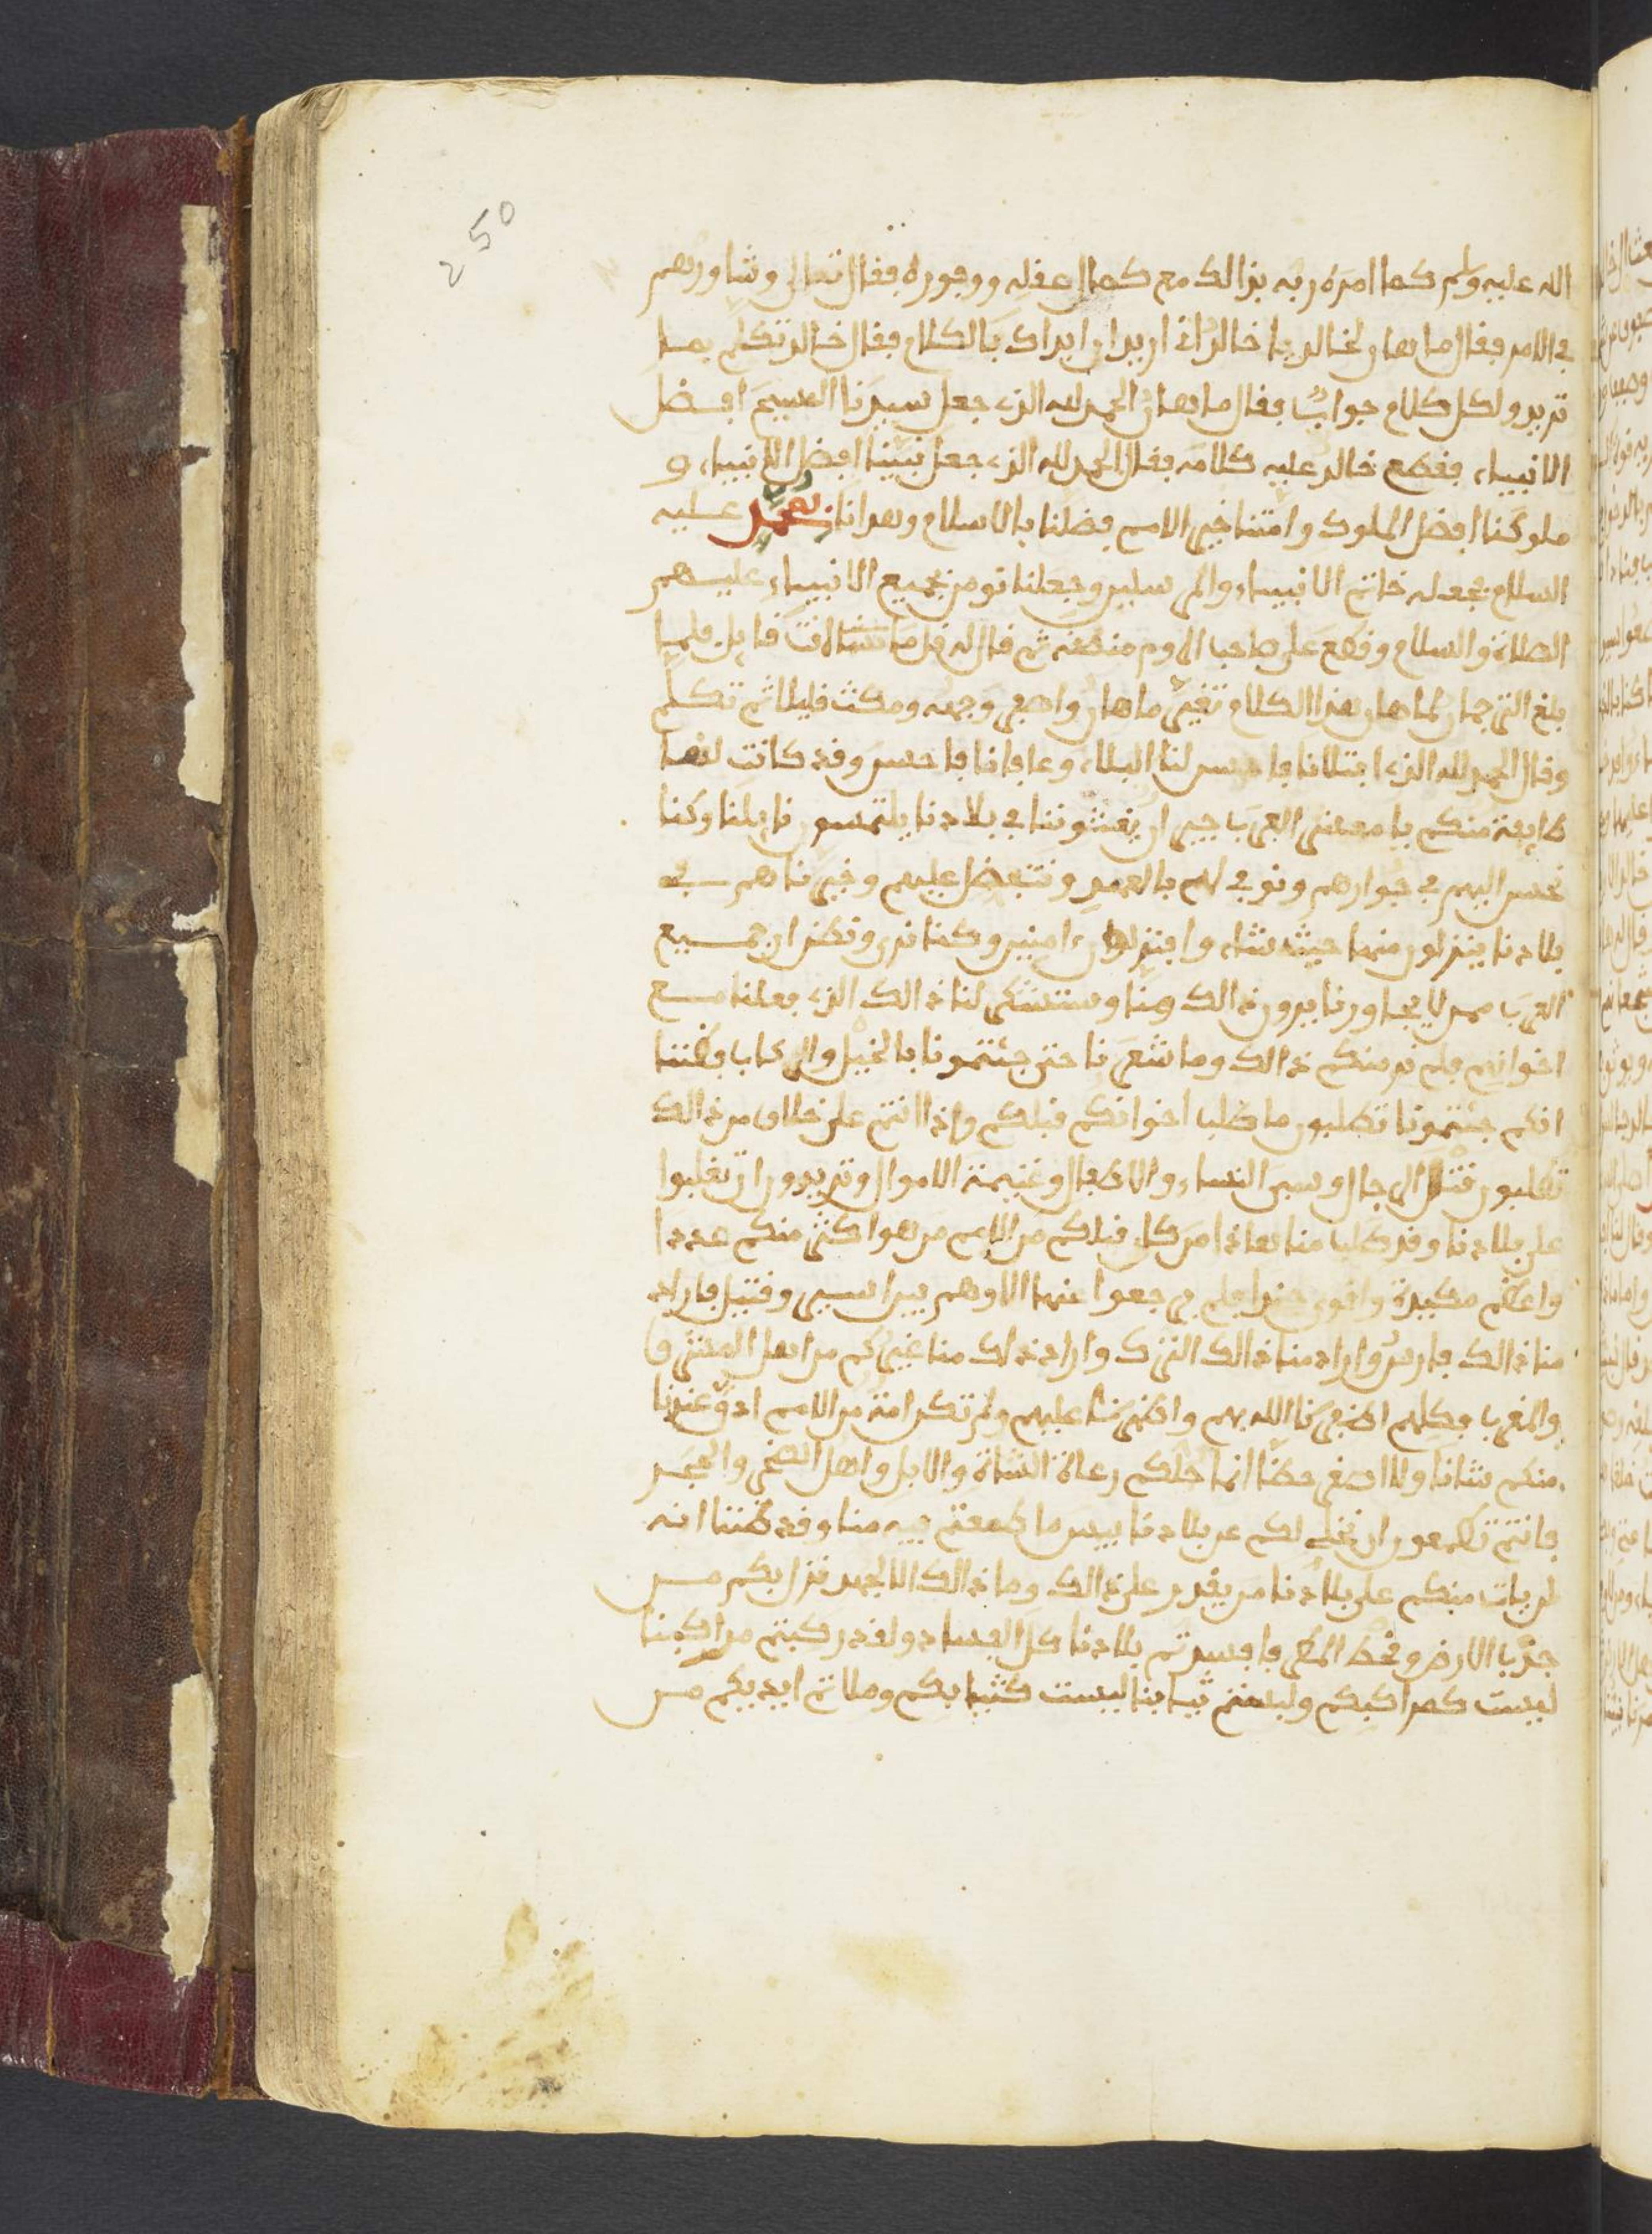 250
الله عليه وسلم كما امره ربه بذالك مع كمال عقله ووفوره فقال تعالى وشاورهم
في الامر فقال ماهان لخالد يا خالد اني اريد ان ابداك بالكلام فقال خالد تكلم بما
تريد ولكل كلام جواب فقال ماهان الحمد لله الذي جعل سيدنا المسيح افضل
الانبياء فقطع خالد عليه كلامه فقال الحمد لله الذي جعل نبينا افضل الانبياء و
ملوكنا افضل الملوك وامتنا خير الامم فضلنا بالاسلام وهدانا بمحمد عليه
السلام فجعله خاتم الانبياء والمرسلين وجعلنا نومن بجميع الانبياء عليهم
الصلاة والسلام وقطع على صاحب الروم منطقه ثم قال له قل ما شئت انت قايل فلما
بلغ الترجمان لماهان هذا الكلام تغير ماهان واصفر وجهه ومكث قليلا ثم تكلم
وقال الحمد لله الذي ابتلانا فاحسن لنا البلاء وعافانا فاحسن وقد كانت لنا
طايفة منكم يا معشر العرب جيران يغشوننا في بلادنا يلتمسون نايلنا وكنا
نحسن اليهم في جوارهم ونوفي لهم بالعهد ونتفضل عليهم وخيرناهم في
بلادنا ينزلون منها حيث شاءوا فينزلون امنين وكنا نرى ونظن ان جميع
العرب ممن لا يجاورنا يرون ذالك منا وستشكر لنا ذالك الذي فعلنا مع
اخوانهم فلم نر منكم ذالك وما شعرنا حتى جئتمونا بالخيل والركاب فظننا
انكم جئتمونا تطلبون ما طلب اخوانكم قبلكم واذا انتم على خلاف من ذالك
تطلبون قتل الرجال وسبي النساء والاطفال وغنيمة الاموال وتريدون ان تغلبوا
على بلادنا وقد طلب منا هاذا من كان قبلكم من الامم من هو اكثر منكم عددا
واعظم مكيدة واقوى جندا فلم يرجعوا عنها الا وهم بين اسير وقتيل فاراد
منا ذالك فارس واراد منا ذالك الترك واراد ذلك منا غيركم من اهل المشرق
والمغرب فكلهم اظفرنا الله بهم واظهرنا عليهم ولم تكن امة من الامم ادق عندنا
منكم شانا ولا اصغر خطا انما جلكم رعاة الشاة والابل واهل الصخر والحجر
فانتم تطمعون ان نخلي لكم عن بلادنا بيس ما طمعتم فيه منا وقد ظننا انه
لم يات منكم على بلادنا من يقدر على ذالك وما ذالك الا لجهد نزل بكم من
جدب الارض وقحط المطر فافسدتم بلادنا كل الفساد ولقد ركبتم مراكبنا
ليست كمراكبكم ولبستم ثيابنا ليست كثيابكم وملاتم ايديكم من